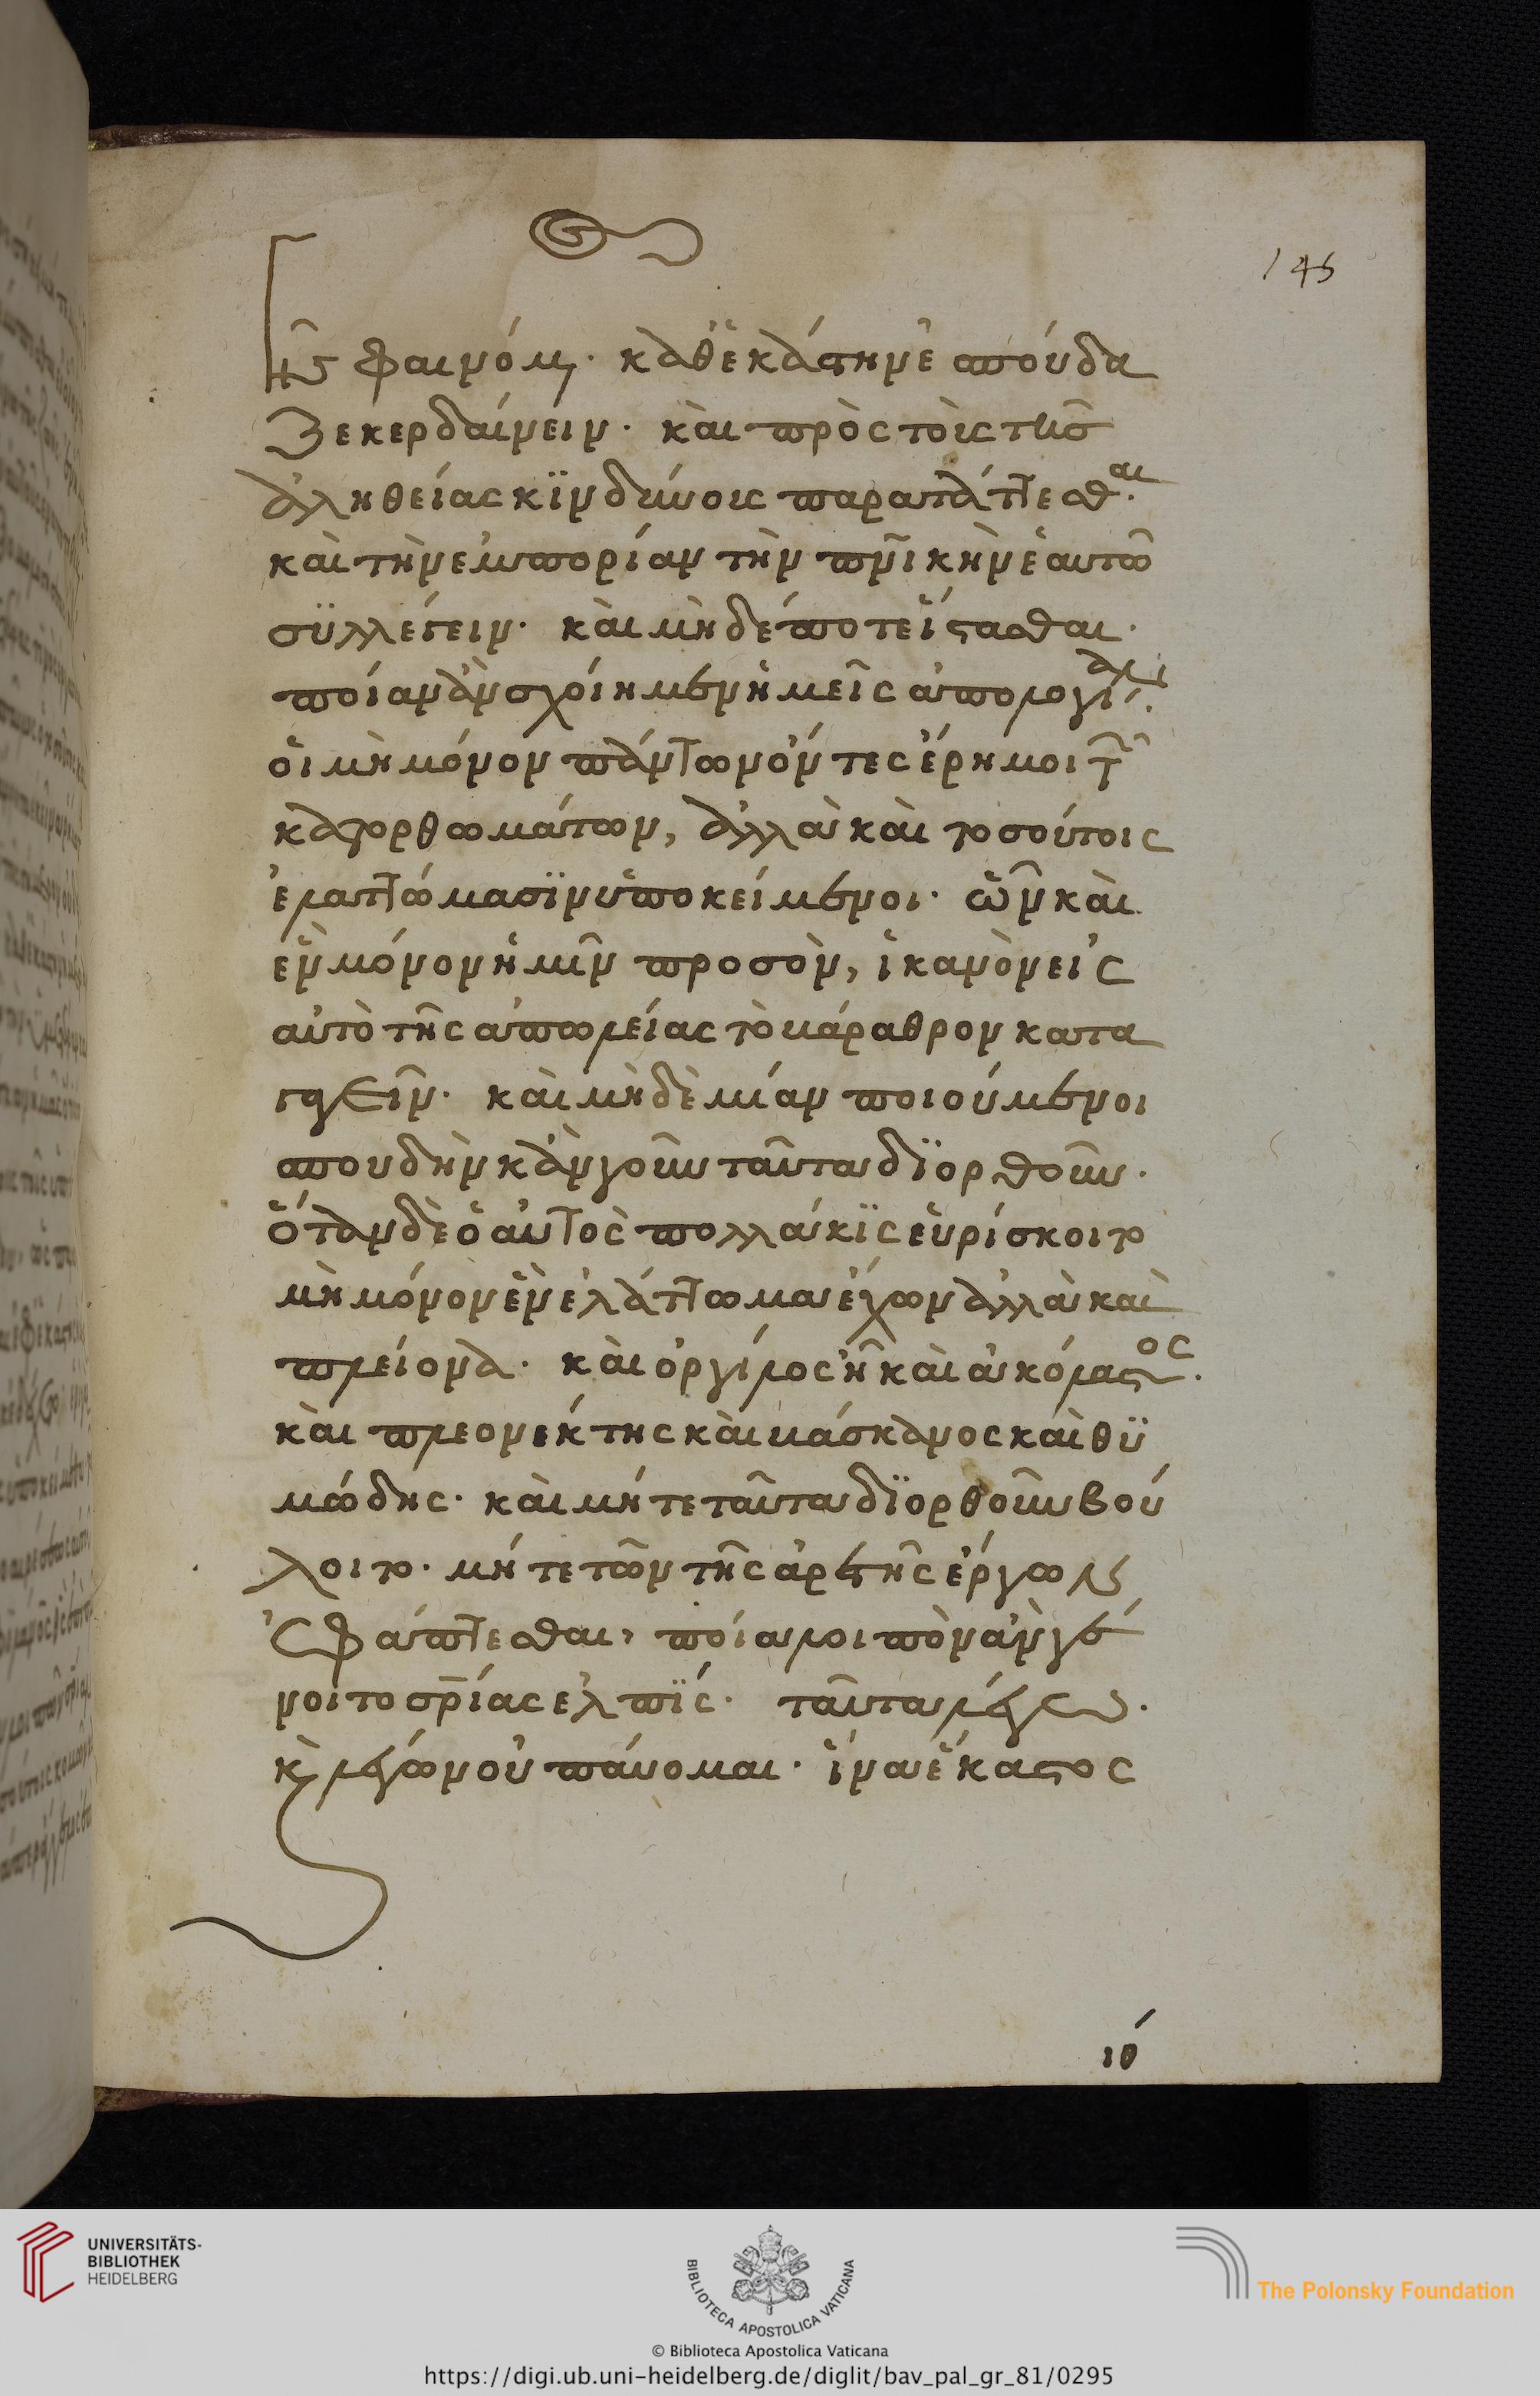 145
γῆς φαινόμ· καθἑκάστην ἐσπούδα
ζε κερδαίνειν· καὶ πρὸς τοὺς τῆς
ἀληθείας κϊνδύνους παρατάττεσθαι·
καὶ τὴν εμπορίαν τὴν πν̅ικὴν ἑαυτῶ
σϋλλέγειν· καὶ μὴδέποτε ἵστασθαι·
ποίαν ἂν σχοίημεν ἡμεῖς ἀπολογίαν·
οἱ μὴ μόνον πάντων ὄντες ἔρημοι τῶν
κατορθωμάτων, ἀλλὰ καὶ τοσούτοις
ἐλαττώμασϊν ὑποκείμενοι· ὧν καὶ
ἓν μόνον ἡμῖν προσὸν, ἱκανὸν εἰς
αὐτὸ τῆς ἀπωλείας τὸ βάραθρον κατα
γαγεῖν· καὶ μὴδὲμίαν ποιούμενοι
σπουδὴν κἂν γοῦν ταῦτα δϊορθοῦν·
ὅταν δὲ ὁ αὐτὸς πολλάκϊς εὑρίσκοιτο
μὴ μόνον ἓν ελάττωμα ἔχων ἀλλὰ καὶ
πλείονα· καὶ ὀργίλος ἦ καὶ ἀκόλαστος·
καὶ πλεονέκτης καὶ βάσκανος καὶ θϋ
μώδης· καὶ μήτε ταῦτα δϊορθοῦν βού
λοιτο· μήτε τῶν τῆς ἀρετῆς ἔργων
ἐφάπτεσθαι, ποία λοιπὸν ἂν γέ
νοιτο σρ̅ίας ελπϊς· ταῦτα λέγω·
κὶ λέγων οὐ παύομαι· ἵνα ἕκαστος
ιθ
UNIVERSITÄTS-
BIBLIOTHEK
HEIDELBERG
BIBLIOTECA APOSTOLICA VATICANA
The Polonsky Foundation
© Biblioteca Apostolica Vaticana
https://digi.ub.uni-heidelberg.de/diglit/bav_pal_gr_81/0295